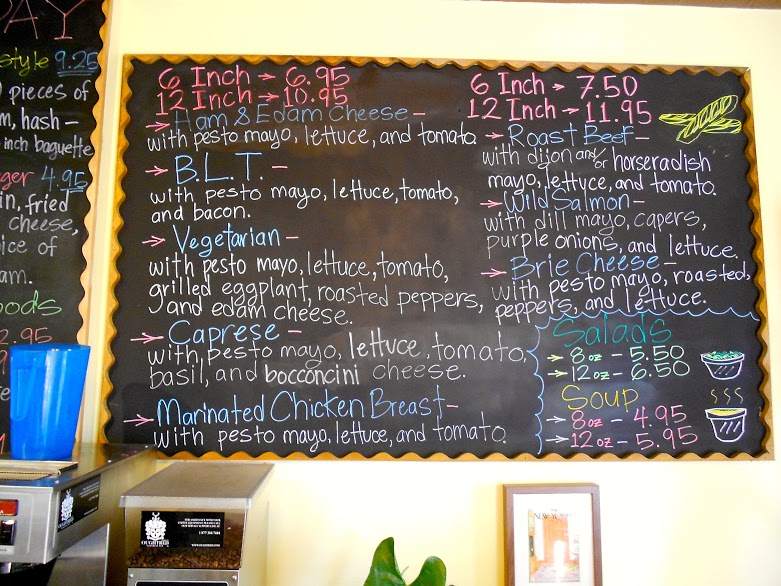 AY
style 9.25
pieces of
m, hash –
inch baguette
ger 4.95
in, fried
cheese,
ice of
am.
oods
2.95
6 Inch → 6.95
12 Inch → 10.95
→ Ham & Edam Cheese –
with pesto mayo, lettuce, and tomato
→ B.L.T. –
with pesto mayo, lettuce, tomato,
and bacon.
→ Vegetarian –
with pesto mayo, lettuce, tomato,
grilled eggplant, roasted peppers,
and edam cheese.
→ Caprese –
with pesto mayo, lettuce, tomato,
basil, and bocconcini cheese.
→ Marinated Chicken Breast –
with pesto mayo, lettuce, and tomato.
6 Inch → 7.50
12 Inch → 11.95
→ Roast Beef –
with dijon and/or horseradish
mayo, lettuce, and tomato.
→ Wild Salmon –
with dill mayo, capers,
purple onions, and lettuce.
→ Brie Cheese –
with pesto mayo, roasted,
peppers, and lettuce.
Salads
→ 8 oz – 5.50
→ 12 oz – 6.50
Soup
→ 8 oz – 4.95
→ 12 oz – 5.95
OUGHTRED
NEW YORK